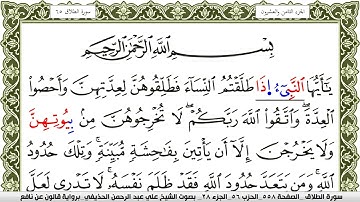 سورة الطلاق ٦٥ الجزء الثامن والعشرون
بِسْمِ اللَّهِ الرَّحْمَٰنِ الرَّحِيمِ
يَٰٓأَيُّهَا النَّبِيٓءُ إِذَا طَلَّقْتُمُ النِّسَآءَ فَطَلِّقُوهُنَّ لِعِدَّتِهِنَّ وَأَحْصُوا
الْعِدَّةَ وَاتَّقُوا اللَّهَ رَبَّكُمْ لَا تُخْرِجُوهُنَّ مِنۢ بُيُوتِهِنَّ
وَلَا يَخْرُجْنَ إِلَّآ أَن يَأْتِينَ بِفَٰحِشَةٍ مُّبَيِّنَةٍ وَتِلْكَ حُدُودُ
اللَّهِ وَمَن يَتَعَدَّ حُدُودَ اللَّهِ فَقَد ظَّلَمَ نَفْسَهُۥ لَا تَدْرِي لَعَلَّ
سورة الطلاق الصفحة ٥٥٨ الحزب ٥٦ الجزء ٢٨ بصوت الشيخ علي عبد الرحمن الحذيفي برواية قالون عن نافع